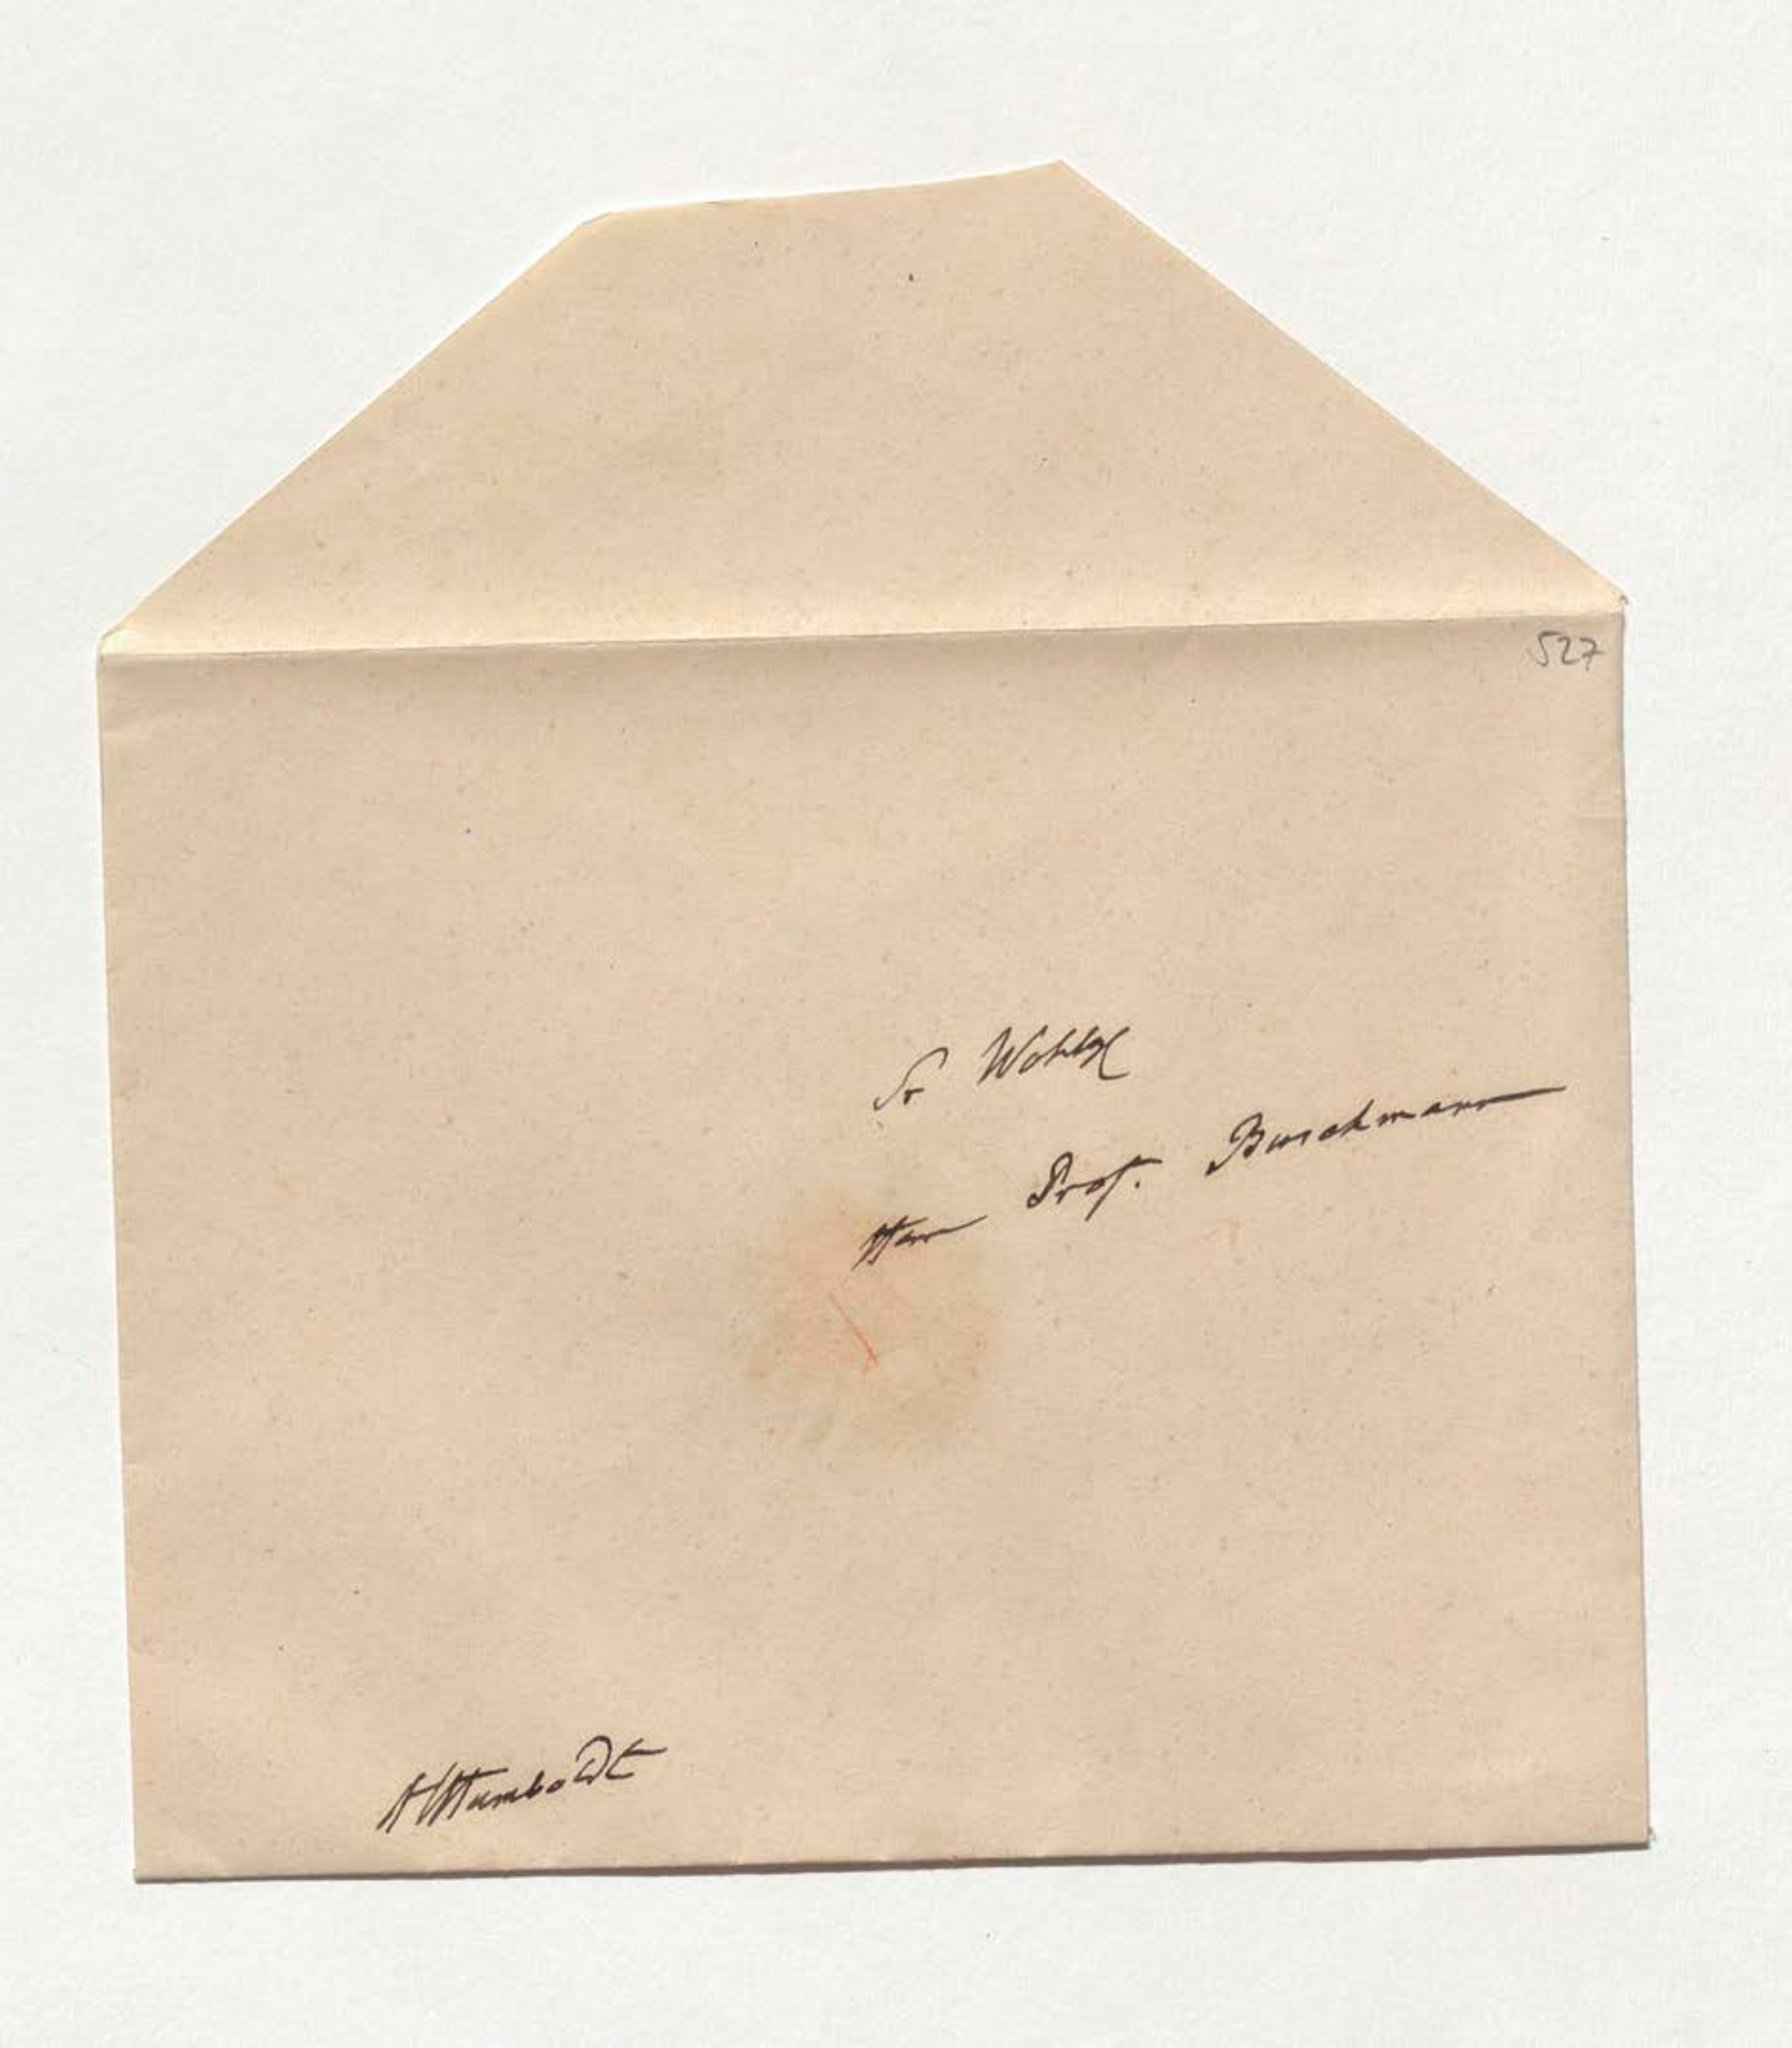 527
Sr Wohlg
Herr Prof. Buschmann
AHumboldt